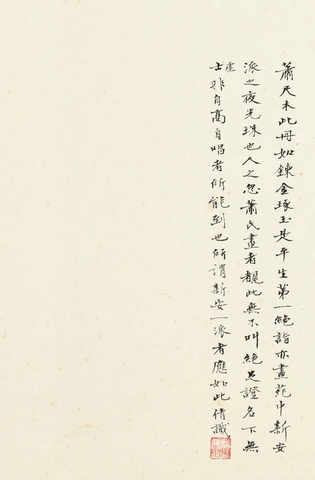 蕭尺木此冊如鍊金琢玉是平生第一絕詣亦畫苑中新安
派之夜光珠也人之忽蕭氏畫者覩此無不叫絕足證名下無
虛
士非自高自唱者所能到也所謂新安一派者應如此倩識